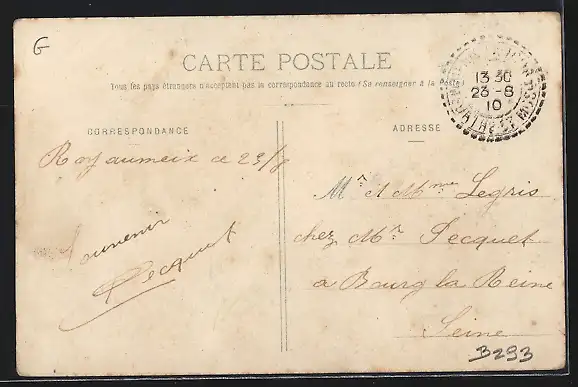 G
CARTE POSTALE
Tous les pays étrangers n'acceptent pas la correspondance au recto (Se renseigner à la Poste)
13 30
23-8
10
CORRESPONDANCE
ADRESSE
Royaumeix ce 23/8
Souvenir
Pecquet
Mr et Mme Legris
chez Mr Pecquet
a Bourg la Reine
Seine
3293